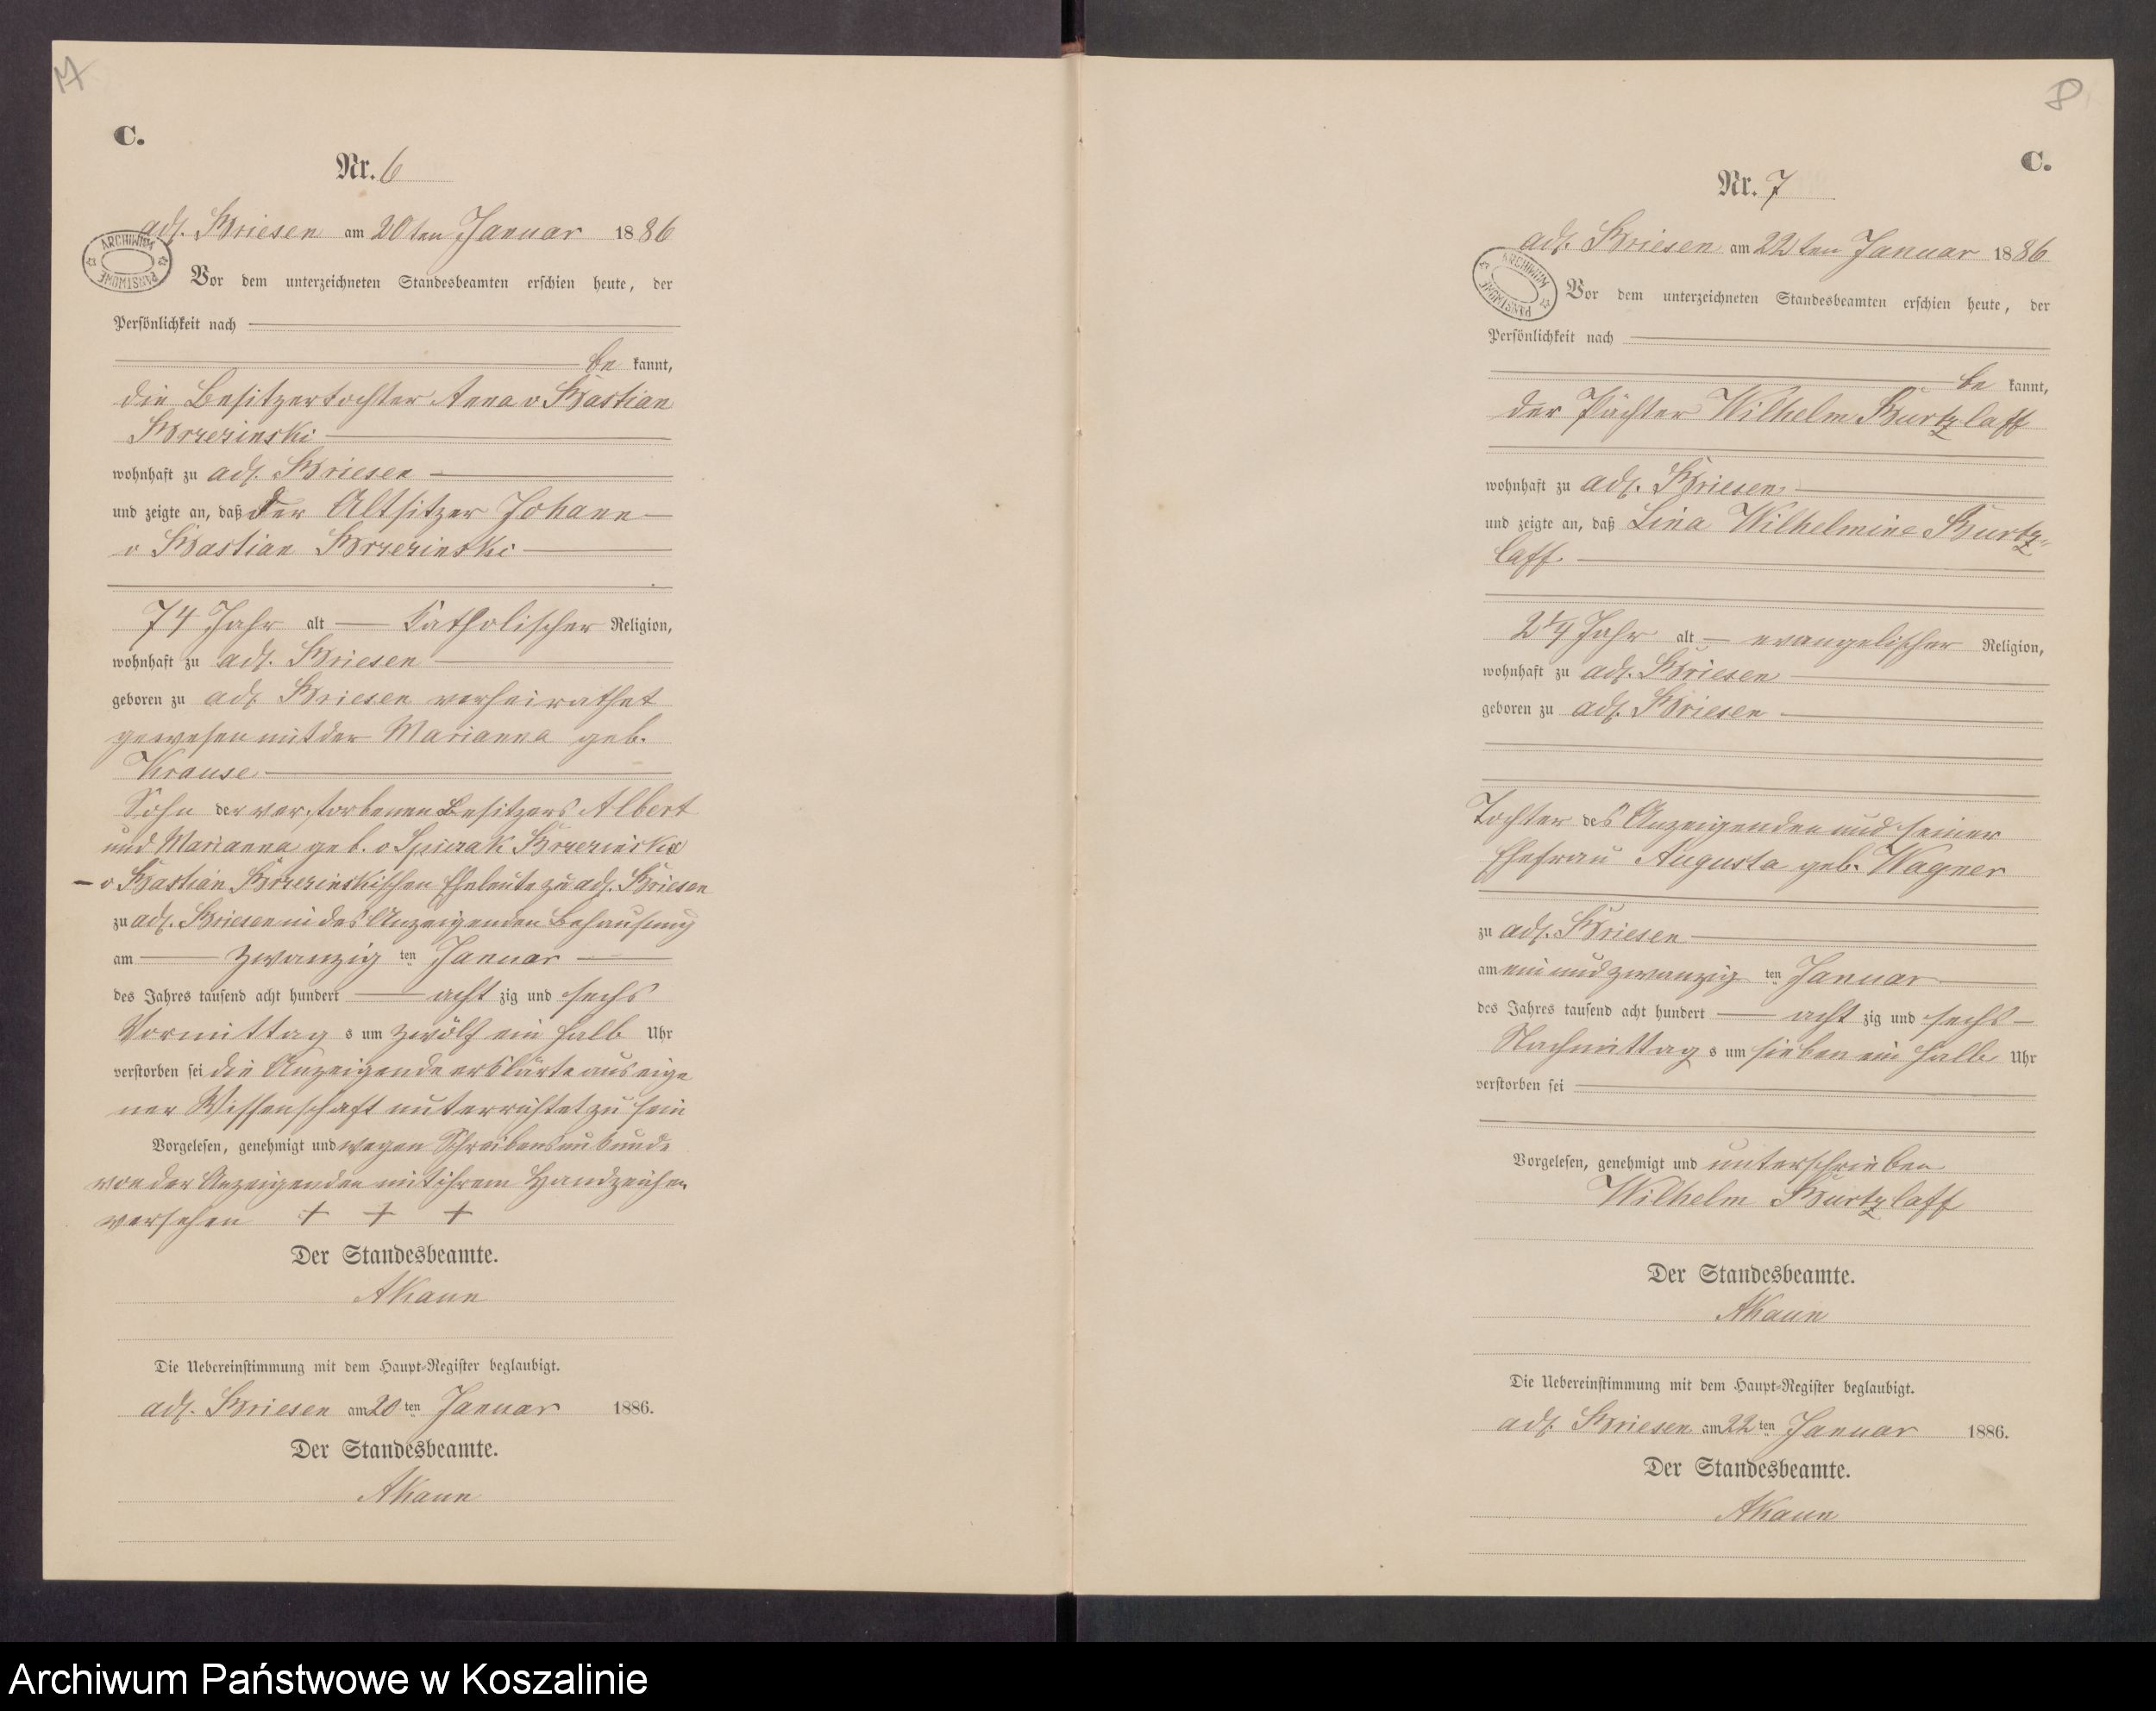 C.
Nr. 6
adl. Briesen am 20ten Januar 1886
ARCHIWUM PAŃSTWOWE
Vor dem unterzeichneten Standesbeamten erschien heute, der
Persönlichkeit nach
be kannt,
die Besitzertochter Anna v Bastian
Brzezinski
wohnhaft zu adl. Briesen
und zeigte an, daß der Altsitzer Johann
v Bastian Brzezinski
74 Jahr alt Katholischer Religion,
wohnhaft zu adl. Briesen
geboren zu adl. Briesen verheirathet
gewesen mit der Marianna geb.
Krause
Sohn der verstorbenen Besitzers Albert
und Marianna geb. v
v Bastian Brzezinskischen Eheleute zu adl. Briesen
zu adl. Briesen in des Anzeigenden Behausung
am zwanzig ten Januar
des Jahres tausend acht hundert acht zig und sechs
Vormittag s um zwölf ein halb Uhr
verstorben sei die Anzeigende erklärte aus eige
ner Wissenschaft unterrichtet zu sein
Vorgelesen, genehmigt und wegen Schreibensunkunde
von der Anzeigenden mit ihrem Handzeichen
versehen + + +
Der Standesbeamte.
AKaun
Die Uebereinstimmung mit dem Haupt-Register beglaubigt.
adl. Briesen am 20 ten Januar 1886.
Der Standesbeamte.
AKaun
8
C.
Nr. 7
adl. Briesen am 22ten Januar 1886
ARCHIWUM PAŃSTWOWE
Vor dem unterzeichneten Standesbeamten erschien heute, der
Persönlichkeit nach
be kannt,
der Pächter Wilhelm Burtzlaff
wohnhaft zu adl. Briesen
und zeigte an, daß Lina Wilhelmine Burtz-
laff
2 1/4 Jahr alt evangelischer Religion,
wohnhaft zu adl. Briesen
geboren zu adl. Briesen
Tochter des Anzeigenden und seiner
Ehefrau Augusta geb. Wagner
zu adl. Briesen
am ein und zwanzig ten Januar
des Jahres tausend acht hundert acht zig und sechs
Nachmittag s um sieben ein halb Uhr
verstorben sei
Vorgelesen, genehmigt und unterschrieben
Wilhelm Burtzlaff
Der Standesbeamte.
AKaun
Die Uebereinstimmung mit dem Haupt-Register beglaubigt.
adl. Briesen am 22 ten Januar 1886.
Der Standesbeamte.
AKaun
Archiwum Państwowe w Koszalinie